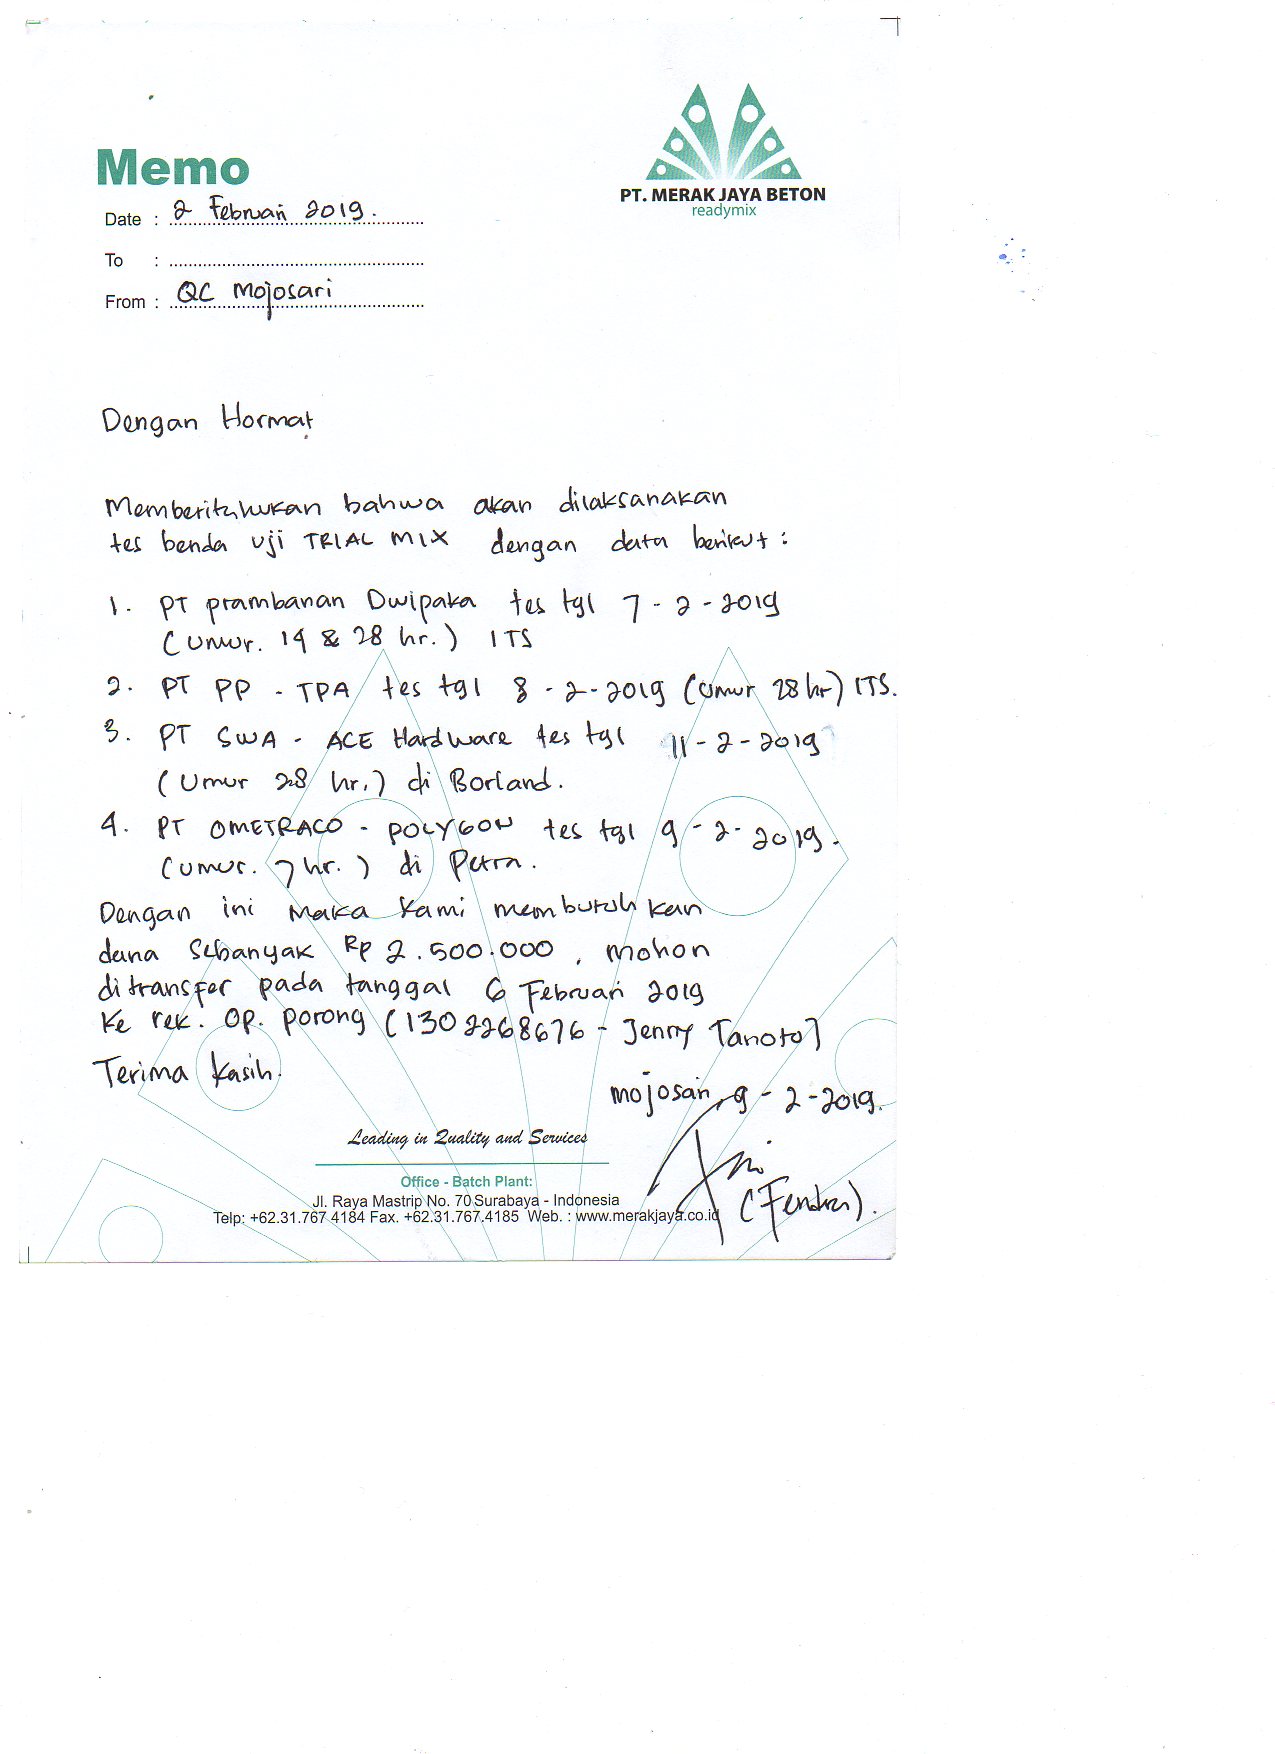 Memo
PT. MERAK JAYA BETON
readymix
Date : 2 Februari 2019.
To :
From : QC Mojosari
Dengan Hormat
Memberitahukan bahwa akan dilaksanakan
tes benda uji TRIAL MIX dengan data berikut :
1. PT prambanan Dwipaka tes tgl 7 - 2 - 2019
(Umur. 14 & 28 hr.) ITS
2. PT PP - TPA tes tgl 8 - 2 - 2019 (Umur 28 hr) ITS.
3. PT SWA - ACE Hardware tes tgl 11 - 2 - 2019
(Umur 28 hr.) di Borland.
4. PT OMETRACO - POLYGON tes tgl 9 - 2 - 2019.
(Umur. 7 hr.) di Petra.
Dengan ini Maka Kami membutuhkan
dana Sebanyak Rp 2.500.000 , mohon
ditransfer pada tanggal 6 Februari 2019
Ke rek. Op. porong (1302268676 - Jenny Tanoto)
Terima kasih.
mojosari, 9 - 2 - 2019.
(Fendra).
Leading in Quality and Services
Office - Batch Plant:
Jl. Raya Mastrip No. 70 Surabaya - Indonesia
Telp: +62.31.767 4184 Fax. +62.31.767.4185 Web. : www.merakjaya.co.id